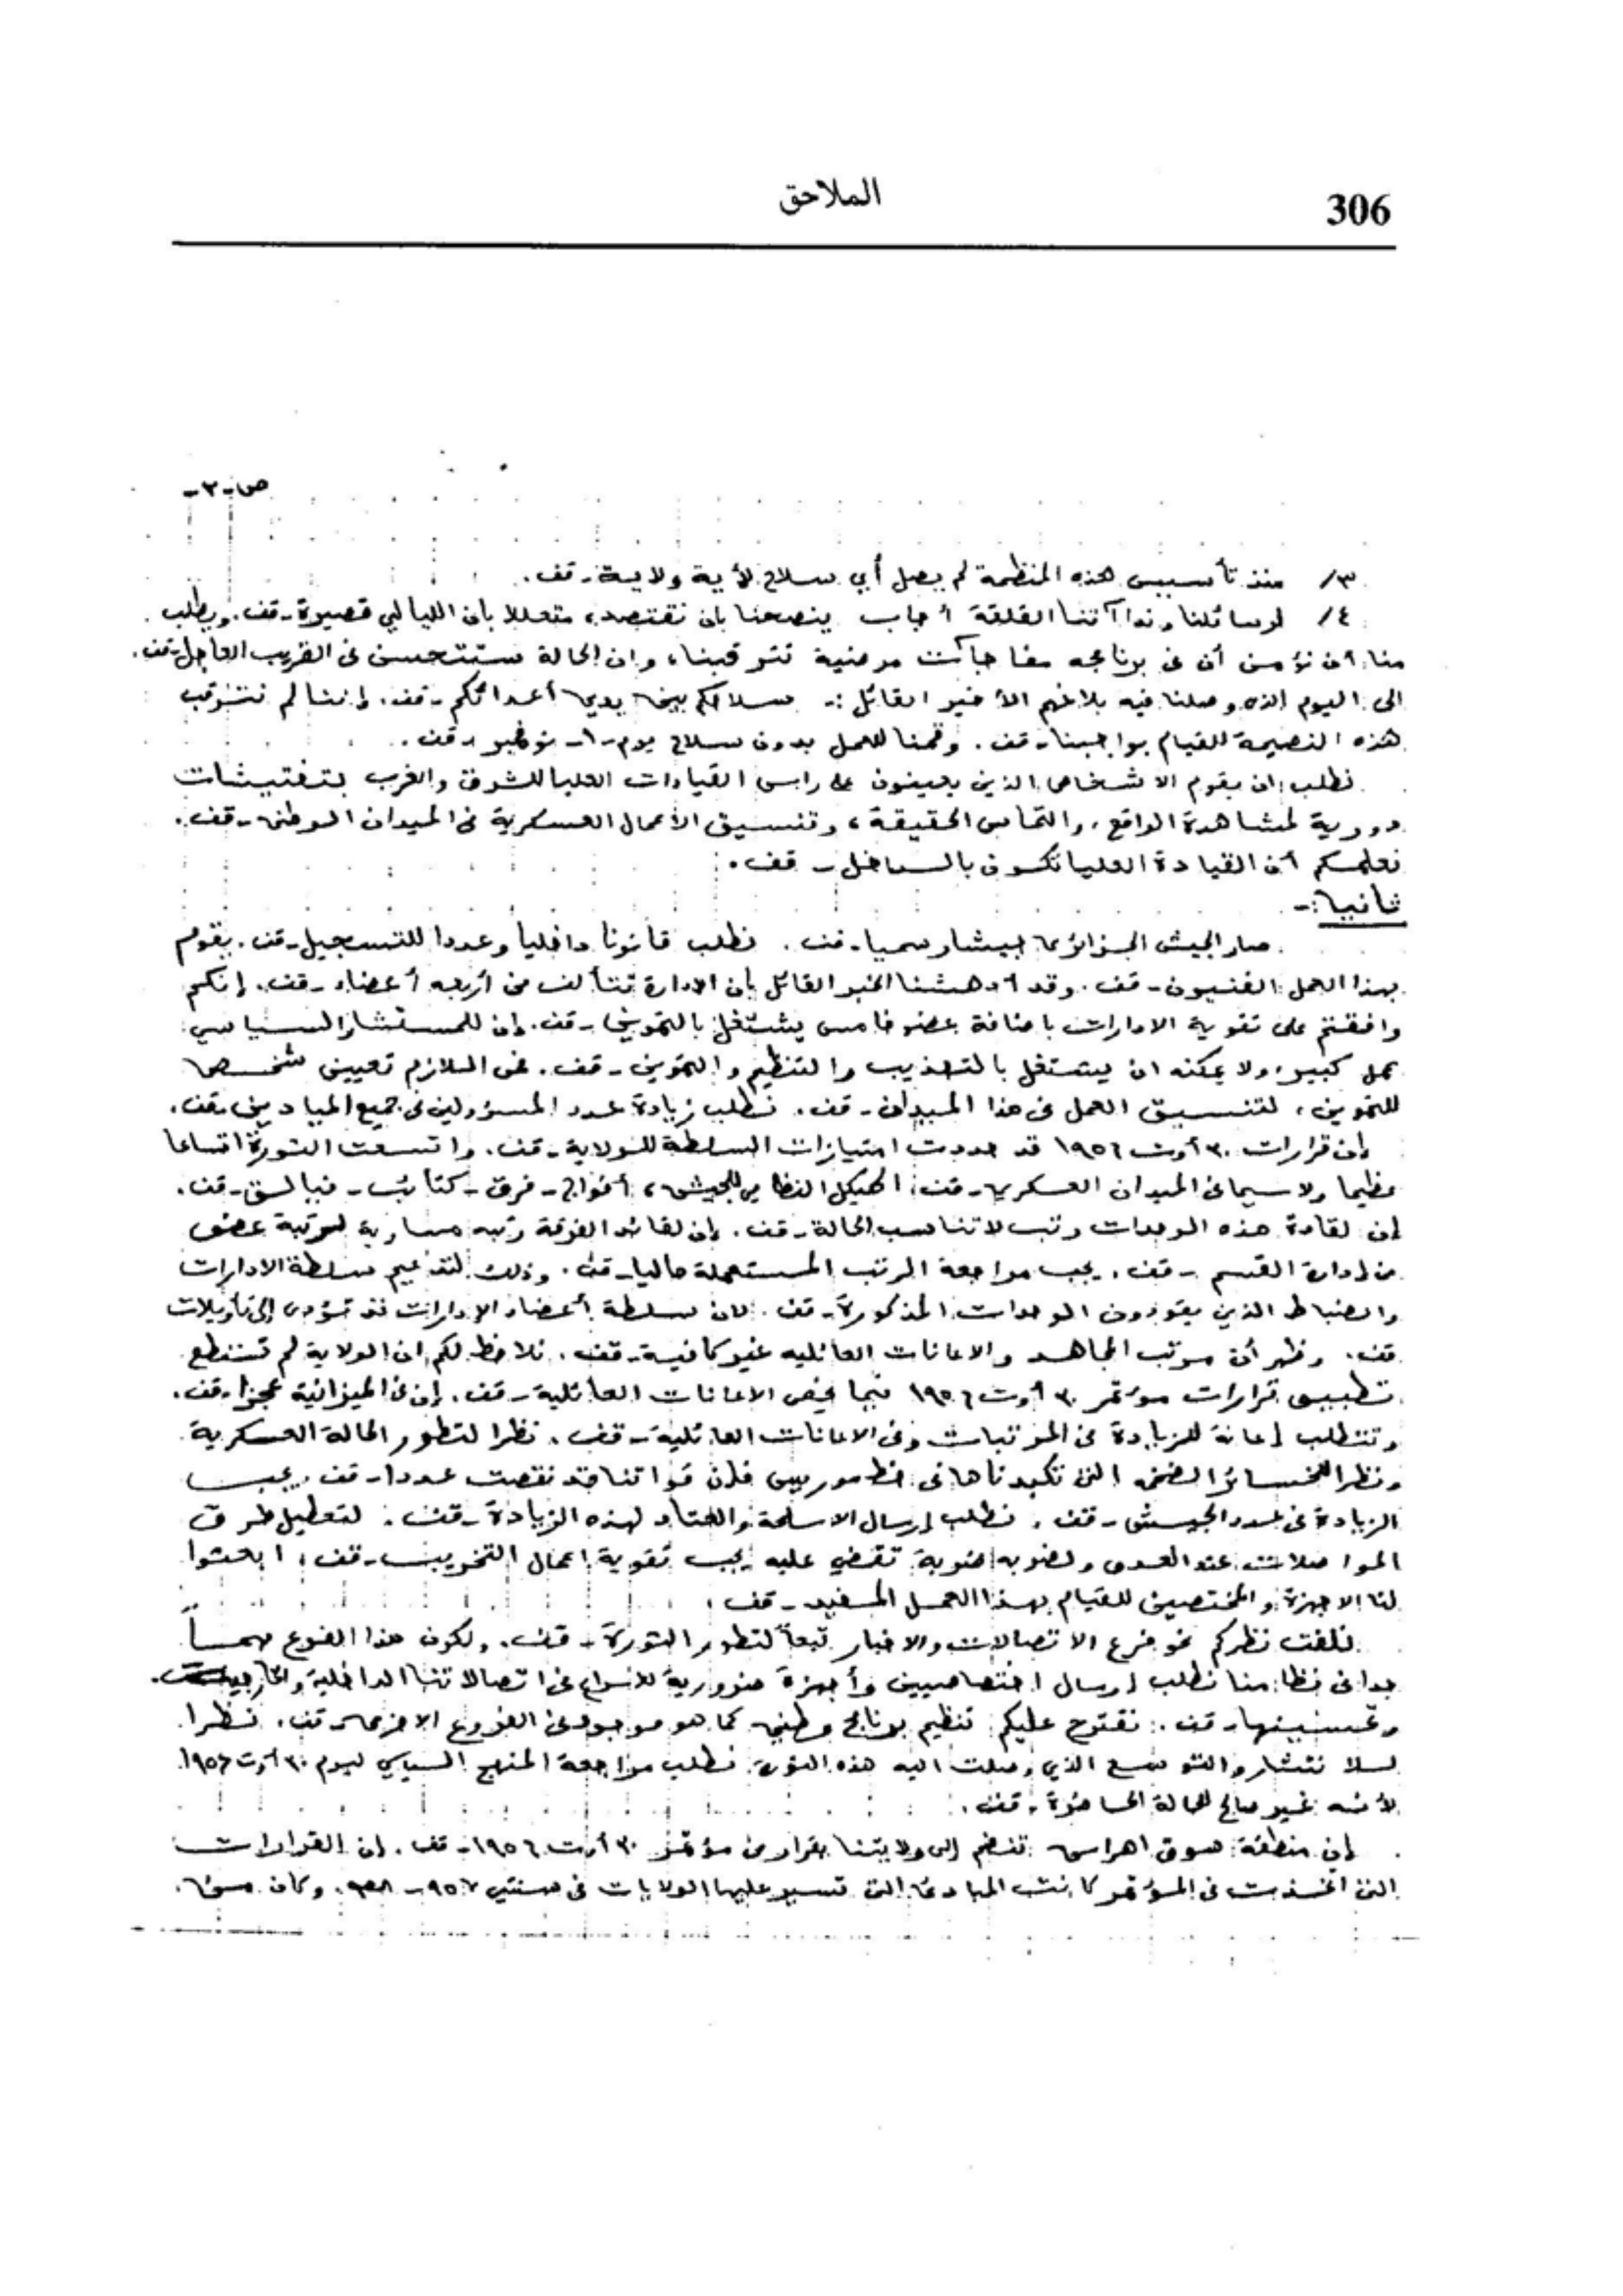 306
الملاحق
ص-٢-
٣/ منذ تأسيس هذه المنظمة لم يصل أي سلاح لأية ولاية-قف.
٤/ لرسائلنا ونداآتنا القلقة أجاب ينصحنا بان نقتصد، متعللا بان الليالي قصيرة-قف. ويطلب
منا أن نؤمن أن في برنامجه مفاجآت مرضية تترقبنا، وان الحالة ستتحسن في القريب العاجل-قف.
الى اليوم الذي وصلنا فيه بلاغهم الأخير القائل :- سلاحكم بين يدي أعدائكم-قف. إننا لم نترقب
هذه النصيحة للقيام بواجبنا-قف. وقمنا للعمل بدون سلاح يوم-١-نوفمبر-قف.
نطلب ان يقوم الاشخاص الذين يعينون على راس القيادات العليا للشرق والغرب بتفتيشات
دورية لمشاهدة الواقع، والتماس الحقيقة، وتنسيق الأعمال العسكرية في الميدان الوطني-قف.
نعلمكم أن القيادة العليا تكون بالداخل-قف.
ثانيا:-
صار الجيش الجزائري جيشا رسميا-قف. نطلب قانونا داخليا وعددا للتسجيل-قف. يقوم
بهذا العمل الفنيون-قف. وقد أدهشنا الخبر القائل بان الادارة تتألف من أربعه أعضاء-قف. إنكم
وافقتم على تقوية الادارات باضافة عضو خامس يشتغل بالتموين-قف. وإن للمستشار السياسي
عمل كبير، ولا يمكنه ان يشتغل بالتهذيب والتنظيم والتموين-قف. فمن اللازم تعيين شخص
للتموين، لتنسيق العمل في هذا الميدان-قف. نطلب زيادة عدد المسؤولين في جميع الميادين-قف.
إن قرارات ٣٠ أوت ١٩٥٦ قد حددت امتيازات السلطة للولاية-قف. واتسعت الثورة اتساعا
عظيما ولا سيما في الميدان العسكري-قف. الهيكل النظامي للجيش، أفواج-فرق-كتائب-فيالق-قف.
إن لقادة هذه الوحدات رتب لا تناسب الحالة-قف. وإن لقائد الفرقة رتبه مساوية لرتبة عضو
من إدارة القسم-قف. يجب مراجعة الرتب المستعملة حاليا-قف. وذلك لتدعيم سلطة الادارات
والضباط الذين يقودون الوحدات المذكورة-قف. لان سلطة أعضاء الإدارات قد تؤدي إلى تأويلات
قف. وظهر أن مرتب المجاهد والاعانات العائليه غير كافية-قف. نلاحظ لكم ان الولاية لم تستطع
تطبيق قرارات مؤتمر ٣٠ أوت ١٩٥٦ فيما يخص الاعانات العائلية-قف. إن في الميزانية عجزا-قف.
وتتطلب إعانة للزيادة في المرتبات وفي الاعانات العائلية-قف. نظرا لتطور الحالة العسكرية
ونظرا للخسائر الضخمه التي تكبدناها في خط موريس فإن قواتنا قد نقصت عددا-قف. يجب
الزيادة في عدد الجيش-قف. نطلب إرسال الاسلحة والعتاد لهذه الزيادة-قف. لتعطيل طرق
المواصلات عند العدو ولضربه ضربة تقضي عليه يجب تقوية اعمال التخريب-قف. ابعثوا
لنا الاجهزة والمختصين للقيام بهذا العمل المفيد-قف.
نلفت نظركم نحو فرع الاتصالات والاخبار تبعاً لتطور الثورة-قف. ولكون هذا الفرع مهمـاً
جدا في نظامنا نطلب إرسال اختصاصيين وأجهزة ضرورية للاسراع في اتصالاتنا الداخلية والخارجية
وتحسينها-قف. نقترح عليكم تنظيم برنامج وطني كما هو موجود في الفروع الاخرى-قف. نظرا
للانتشار والتوسع الذي وصلت اليه هذه الثورة نطلب مراجعة المنهج السياسي ليوم ٣٠ أوت ١٩٥٦
لأنه غير صالح للحالة الحاضرة-قف.
إن منطقة سوق اهراس تنضم إلى ولايتنا بقرار من مؤتمر ٣٠ أوت ١٩٥٦-قف. إن القرارات
التي اتخذت في المؤتمر كانت المبادئ التي تسير عليها الولايات في سنتي ٩٥٧-٩٥٨. وكان